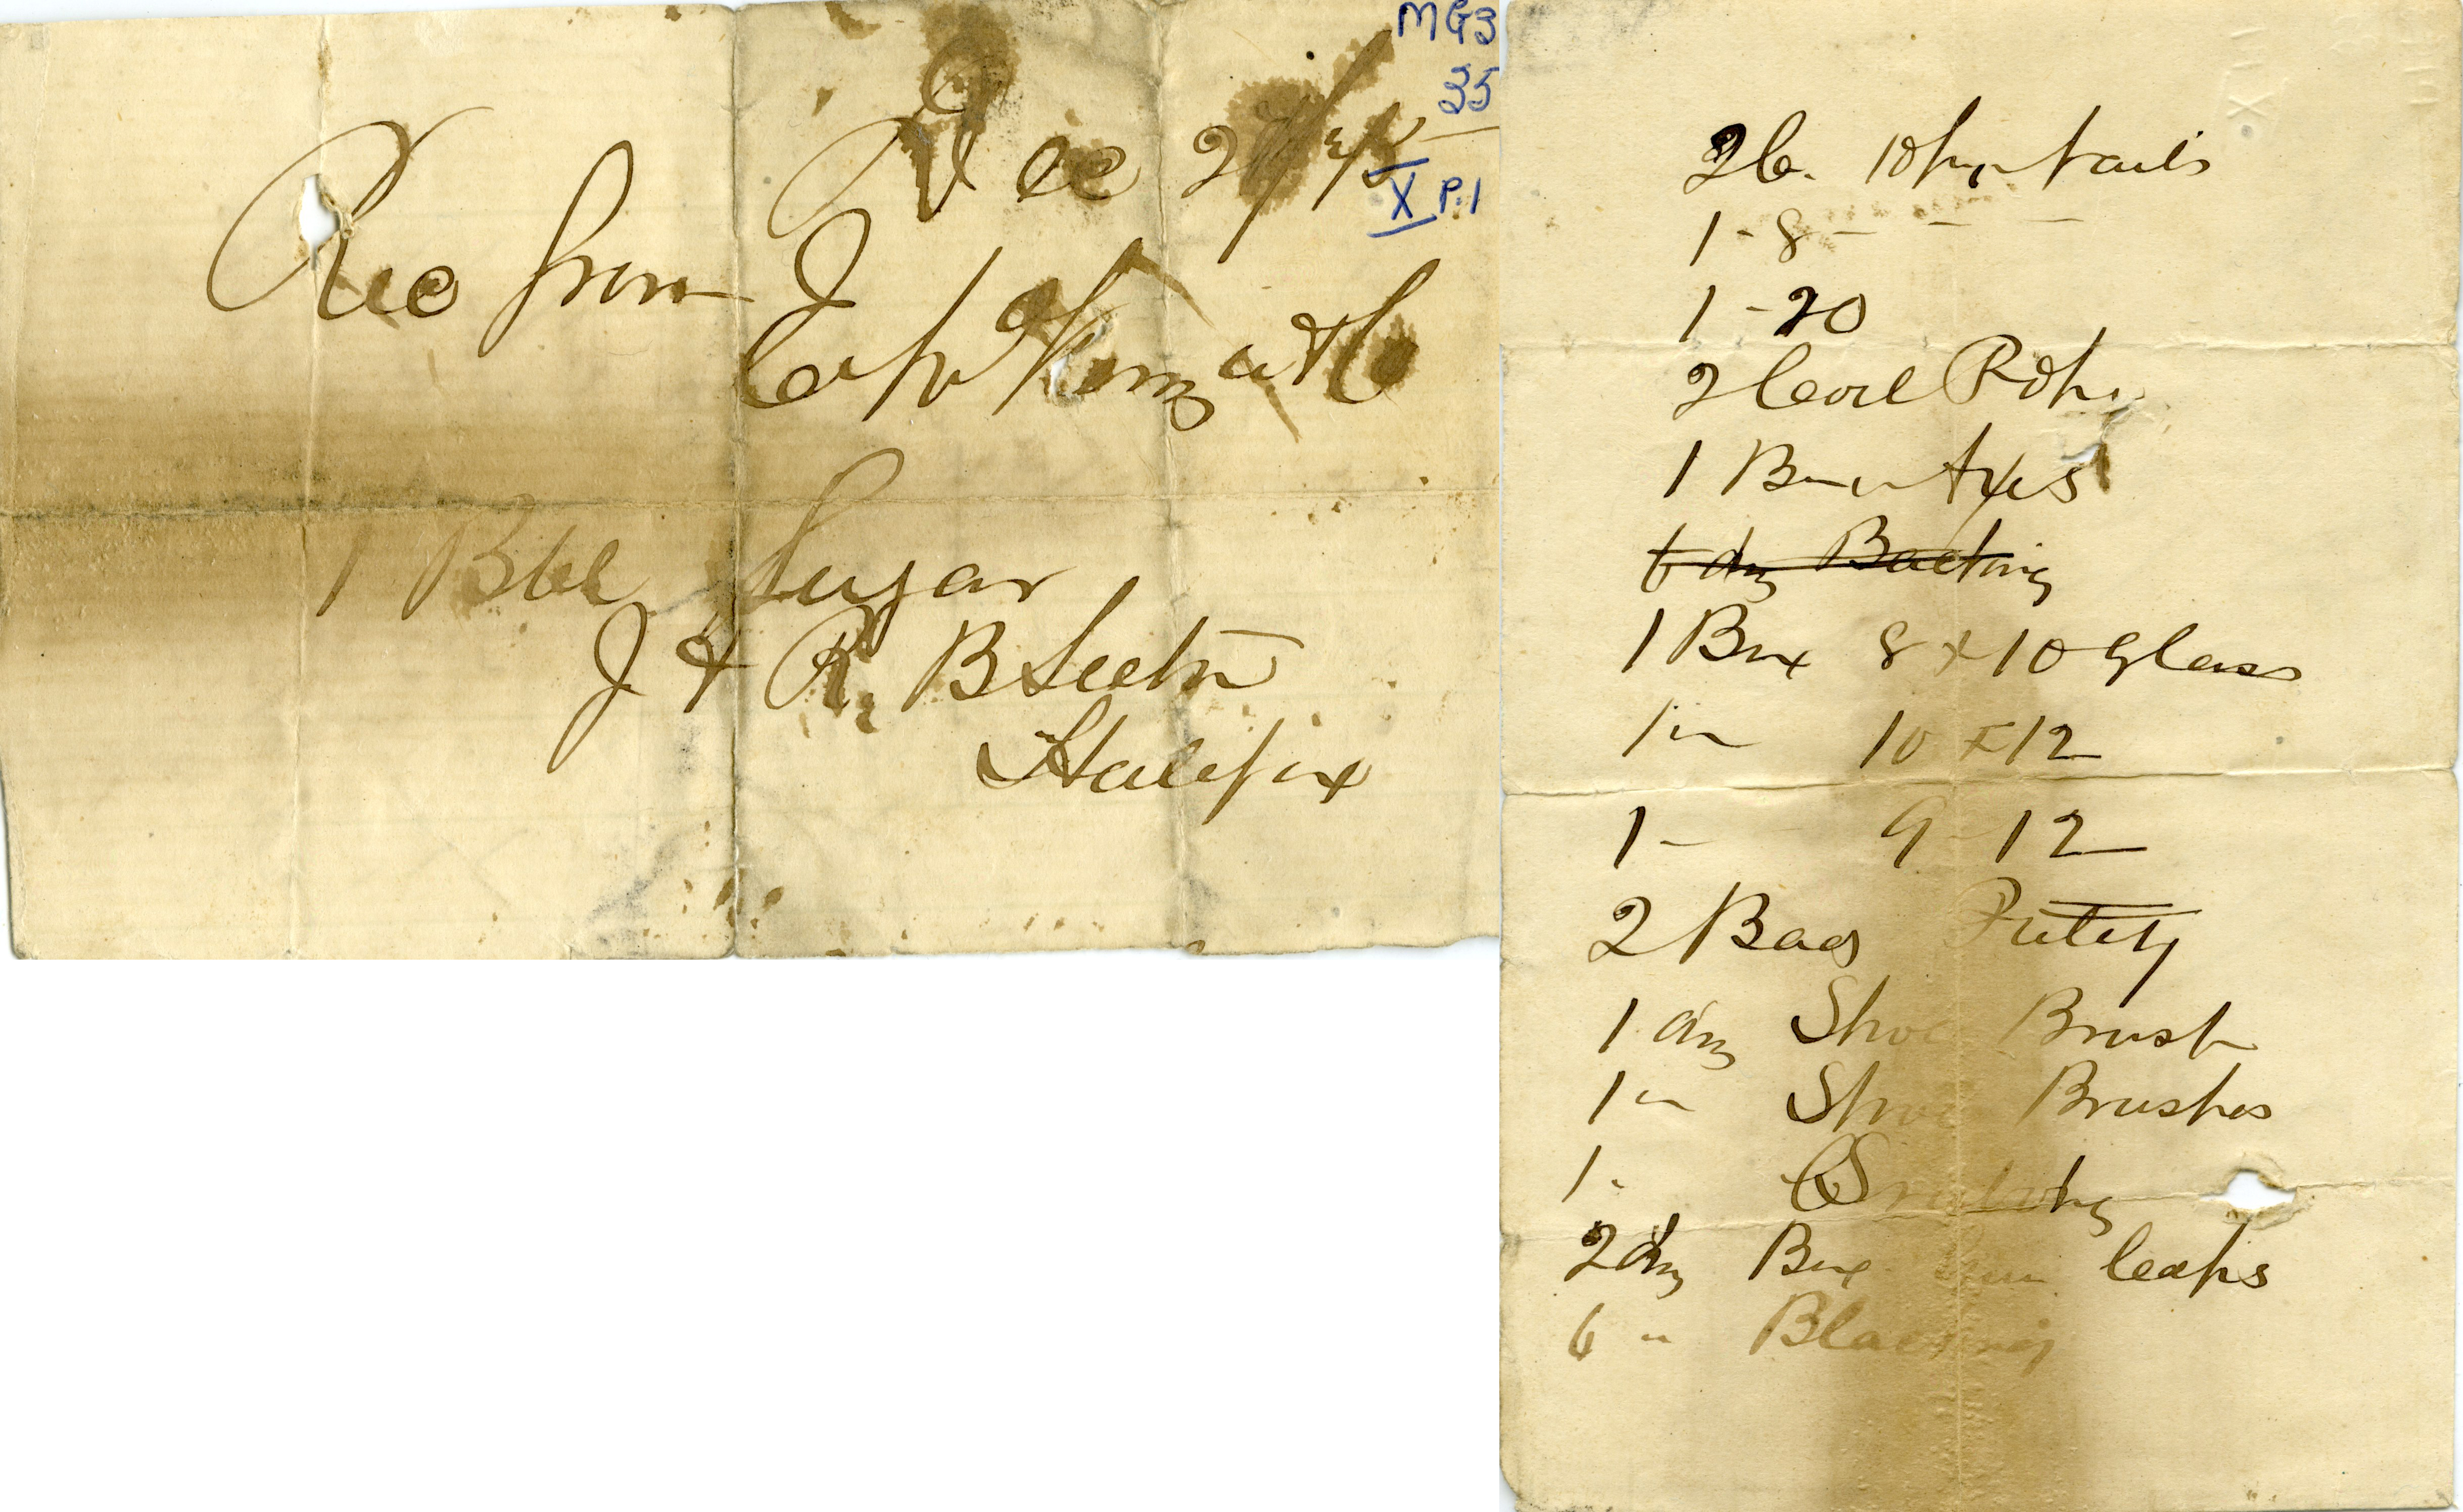 MG3
35
X P.1
Dec
Rec from J
Capt & Co
1 Bbl Sugar
J & R. B Seeton
Halifax
2 C. 10 nails
1 - 8 - - -
1 - 20
2 Coil Rope
1 Box Axes
6 dz Blacking
1 Box 8 x 10 Glass
1 " 10 x 12
1 - 9 - 12
2 Bag Putty
1 dz Shoe Brush
1 " Shoe Brushes
1
2 dz Box caps
6 " Blacking